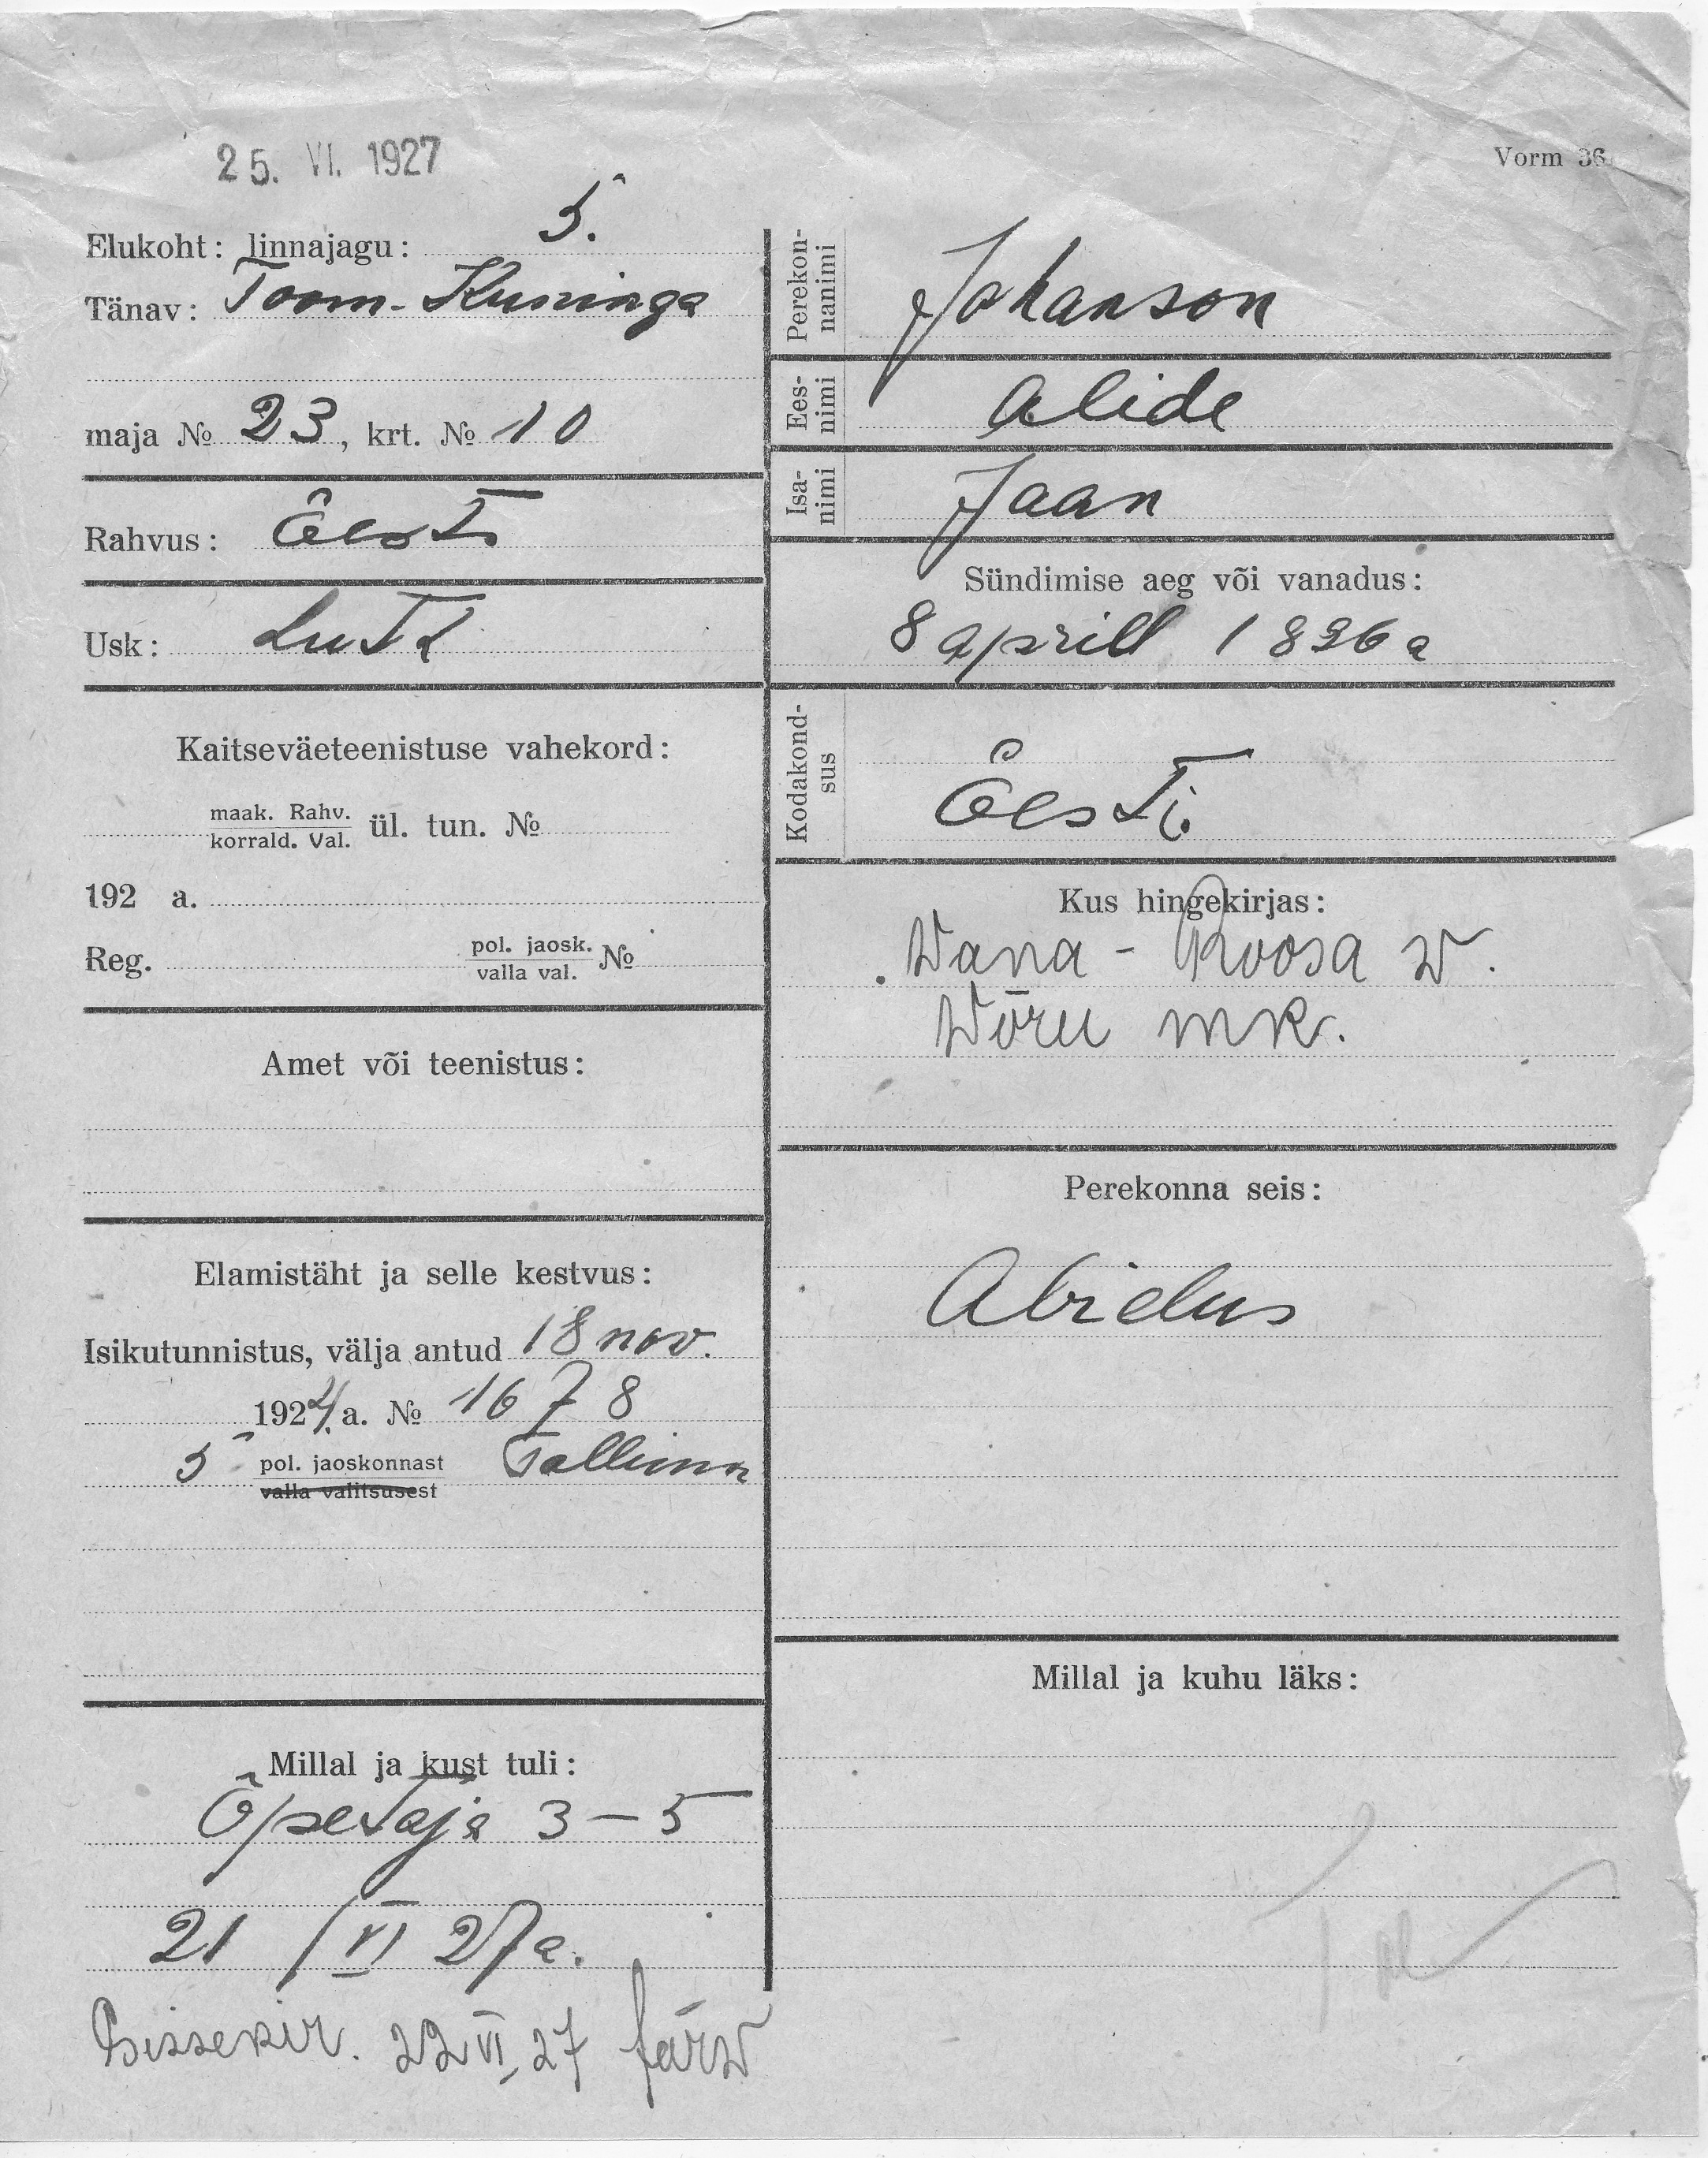 25. VI. 1927
Vorm 36
Elukoht: linnajagu: 5.
Tänav: Toom-Kuninga
maja № 23, krt. № 10
Rahvus: Eesti
Usk: Lut
Kaitseväeteenistuse vahekord:
maak. Rahv.
korrald. Val. ül. tun. №
192 a.
Reg. pol. jaosk.
valla val. №
Amet või teenistus:
Elamistäht ja selle kestvus:
Isikutunnistus, välja antud 18 nov.
1924 a. № 1678
5 pol. jaoskonnast Tallinna
valla valitsusest
Millal ja kust tuli:
Õpetaja 3–5
21/VI 27 a.
Sissekir. 22 VI 27
Perekon-
nanimi Johanson
Ees-
nimi Alide
Isa-
nimi Jaan
Sündimise aeg või vanadus:
8 aprill 1896 a
Kodakond-
sus Eesti
Kus hingekirjas:
Wana-Roosa w.
Wõru mk.
Perekonna seis:
Abielus
Millal ja kuhu läks: